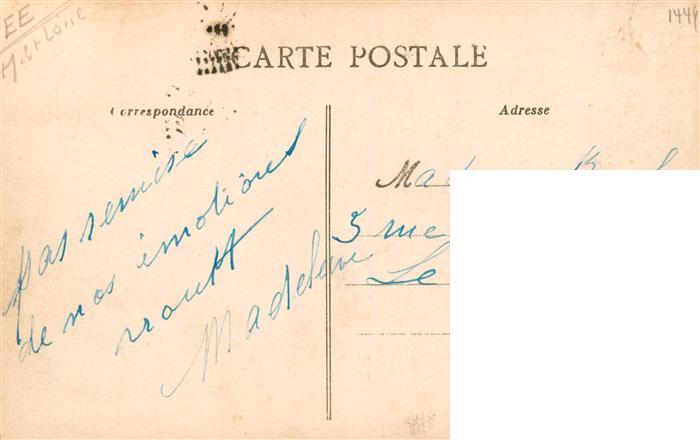 EE
M. et Loire
144
CARTE POSTALE
Correspondance
Adresse
pas remise
de nos émotions
Madeleine
3 rue
Le